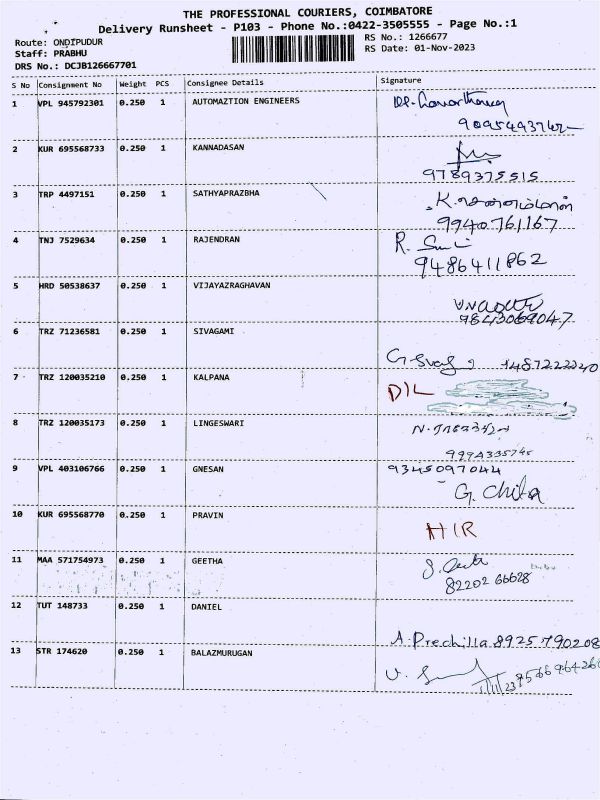 THE PROFESSIONAL COURIERS, COIMBATORE
Delivery Runsheet - P103 - Phone No.:0422-3505555 - Page No.:1
Route: ONDIPUDUR
Staff: PRABHU
DRS No.: DCJB126667701
RS No.: 1266677
RS Date: 01-Nov-2023
S No Consignment No Weight PCS Consignee Details Signature
1 VPL 945792301 0.250 1 AUTOMAZTION ENGINEERS
2 KUR 695568733 0.250 1 KANNADASAN
9789375515
3 TRP 4497151 0.250 1 SATHYAPRAZBHA
9940761167
4 TNJ 7529634 0.250 1 RAJENDRAN R.
9486411862
5 HRD 50538637 0.250 1 VIJAYAZRAGHAVAN
9843069047
6 TRZ 71236581 0.250 1 SIVAGAMI
7 TRZ 120035210 0.250 1 KALPANA D/L
8 TRZ 120035173 0.250 1 LINGESWARI N.
9994335745
9 VPL 403106766 0.250 1 GNESAN 9345097044
G. Chitra
10 KUR 695568770 0.250 1 PRAVIN
H/R
11 MAA 571754973 0.250 1 GEETHA
82202 66628
12 TUT 148733 0.250 1 DANIEL
A. Prechilla 8925790208
13 STR 174620 0.250 1 BALAZMURUGAN
V.